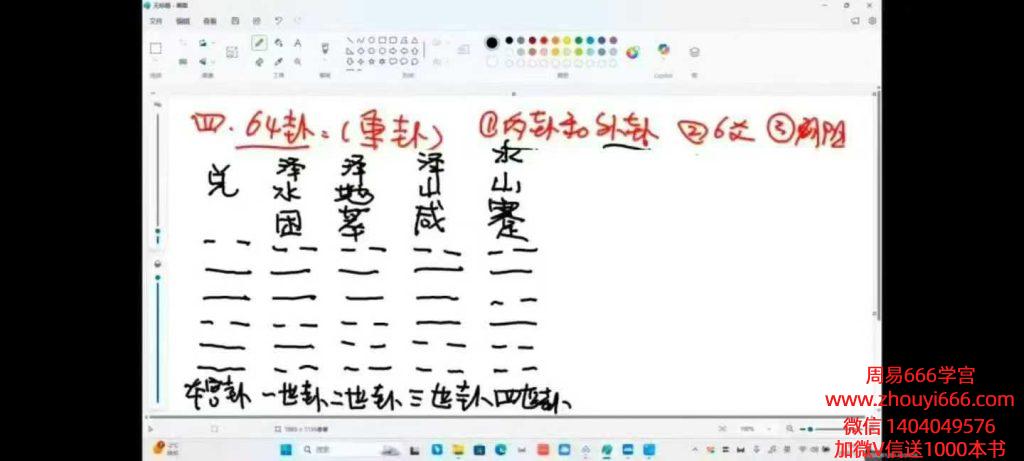 文件 编辑 查看
四. 64卦:(重卦) ①内卦和外卦 ②6爻 ③阴阳
兑 泽水困 泽地萃 泽山咸 水山蹇
本宫卦 一世卦 二世卦 三世卦 四世卦
周易666学宫
www.zhouyi666.com
微信 1404049576
加微V信送1000本书